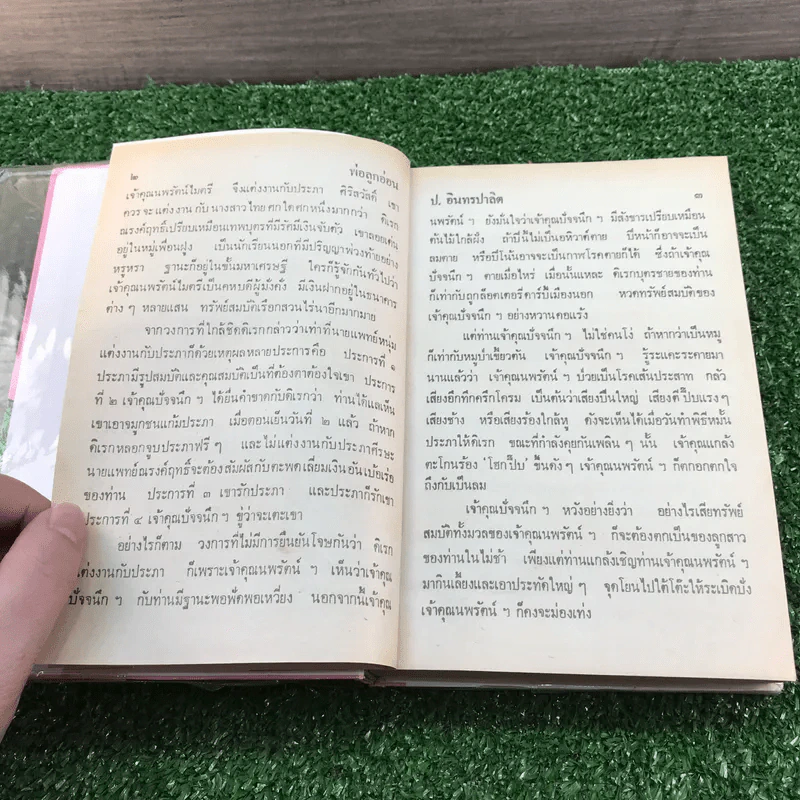 ๒ พ่อลูกอ่อน
เจ้าคุณนพรัตน์ไมตรี จึงแต่งงานกับประภา ศิริสวัสดิ์ เขา
ควรจะแต่งงานกับนางสาวไทยตกใดตกหนึ่งมากกว่า ดิเรก
ณรงค์ฤทธิ์เปรียบเหมือนเทพบุตรที่มีรัศมีเงินจับตัว เขาลอยเด่น
อยู่ในหมู่เพื่อนฝูง เป็นนักเรียนนอกที่มีปริญญาพ่วงท้ายอย่าง
หรูหรา ฐานะก็อยู่ในชั้นมหาเศรษฐี ใครก็รู้จักกันทั่วไปว่า
เจ้าคุณนพรัตน์ไมตรีเป็นคหบดีผู้มั่งคั่ง มีเงินฝากอยู่ในธนาคาร
ต่าง ๆ หลายแสน ทรัพย์สมบัติเรือกสวนไร่นาอีกมากมาย
จากวงการที่ใกล้ชิดดิเรกกล่าวว่าเท่าที่นายแพทย์หนุ่ม
แต่งงานกับประภาก็ด้วยเหตุผลหลายประการคือ ประการที่ ๑
ประภามีรูปสมบัติและคุณสมบัติเป็นที่ต้องตาต้องใจเขา ประการ
ที่ ๒ เจ้าคุณปัจจนึก ฯ ได้ยื่นคำขาดกับดิเรกว่า ท่านได้แลเห็น
เขาเอาจมูกชนแก้มประภา เมื่อตอนเย็นวันที่ ๒ แล้ว ถ้าหาก
ดิเรกหลอกจูบประภาฟรี ๆ และไม่แต่งงานกับประภาศีรษะ
นายแพทย์ณรงค์ฤทธิ์จะต้องสัมผัสกับตะพดเลี่ยมเงินอันเบ้อเร้อ
ของท่าน ประการที่ ๓ เขารักประภา และประภาก็รักเขา
ประการที่ ๔ เจ้าคุณปัจจนึก ฯ ขู่ว่าจะเตะเขา
อย่างไรก็ตาม วงการที่ไม่มีการยืนยันโจษกันว่า ดิเรก
แต่งงานกับประภา ก็เพราะเจ้าคุณนพรัตน์ ฯ เห็นว่าเจ้าคุณ
ปัจจนึก ฯ กับท่านมีฐานะพอฟัดพอเหวี่ยง นอกจากนี้เจ้าคุณ
ป. อินทรปาลิต ๓
นพรัตน์ ฯ ยังมั่นใจว่าเจ้าคุณปัจจนึก ฯ มีสังขารเปรียบเหมือน
ต้นไม้ใกล้ฝั่ง ถ้าปีนี้ไม่เป็นอหิวาต์ตาย ปีหน้าก็อาจจะเป็น
ลมตาย หรือปีโน้นอาจจะเป็นกาฬโรคตายก็ได้ ซึ่งถ้าเจ้าคุณ
ปัจจนึก ฯ ตายเมื่อใหร่ เมื่อนั้นแหละ ดิเรกบุตรชายของท่าน
ก็เท่ากับถูกล็อตเตอรี่ดาร์บี้เมืองนอก หวดทรัพย์สมบัติของ
เจ้าคุณปัจจนึก ฯ อย่างหวานคอแร้ง
แต่ท่านเจ้าคุณปัจจนึก ฯ ไม่ใช่คนโง่ ถ้าหากว่าเป็นหมู
ก็เท่ากับหมูป่าเขี้ยวตัน เจ้าคุณปัจจนึก ฯ รู้ระแคะระคายมา
นานแล้วว่า เจ้าคุณนพรัตน์ ฯ ป่วยเป็นโรคเส้นประสาท กลัว
เสียงอึกทึกครึกโครม เป็นต้นว่าเสียงปืนใหญ่ เสียงตีปี๊บแรง ๆ
เสียงช้าง หรือเสียงร้องใกล้หู ดังจะเห็นได้เมื่อวันทำพิธีหมั้น
ประภาให้ดิเรก ขณะที่กำลังคุยกันเพลิน ๆ นั้น เจ้าคุณแกล้ง
ตะโกนร้อง ‘โฮกปี๊บ’ ขึ้นดัง ๆ เจ้าคุณนพรัตน์ ฯ ก็ตกอกตกใจ
ถึงกับเป็นลม
เจ้าคุณปัจจนึก ฯ หวังอย่างยิ่งว่า อย่างไรเสียทรัพย์
สมบัติทั้งมวลของเจ้าคุณนพรัตน์ ฯ ก็จะต้องตกเป็นของลูกสาว
ของท่านในไม่ช้า เพียงแต่ท่านแกล้งเชิญท่านเจ้าคุณนพรัตน์ ฯ
มากินเลี้ยงและเอาประทัดใหญ่ ๆ จุดโยนไปใต้โต๊ะให้ระเบิดปัง
เจ้าคุณนพรัตน์ ฯ ก็คงจะม่องเท่ง